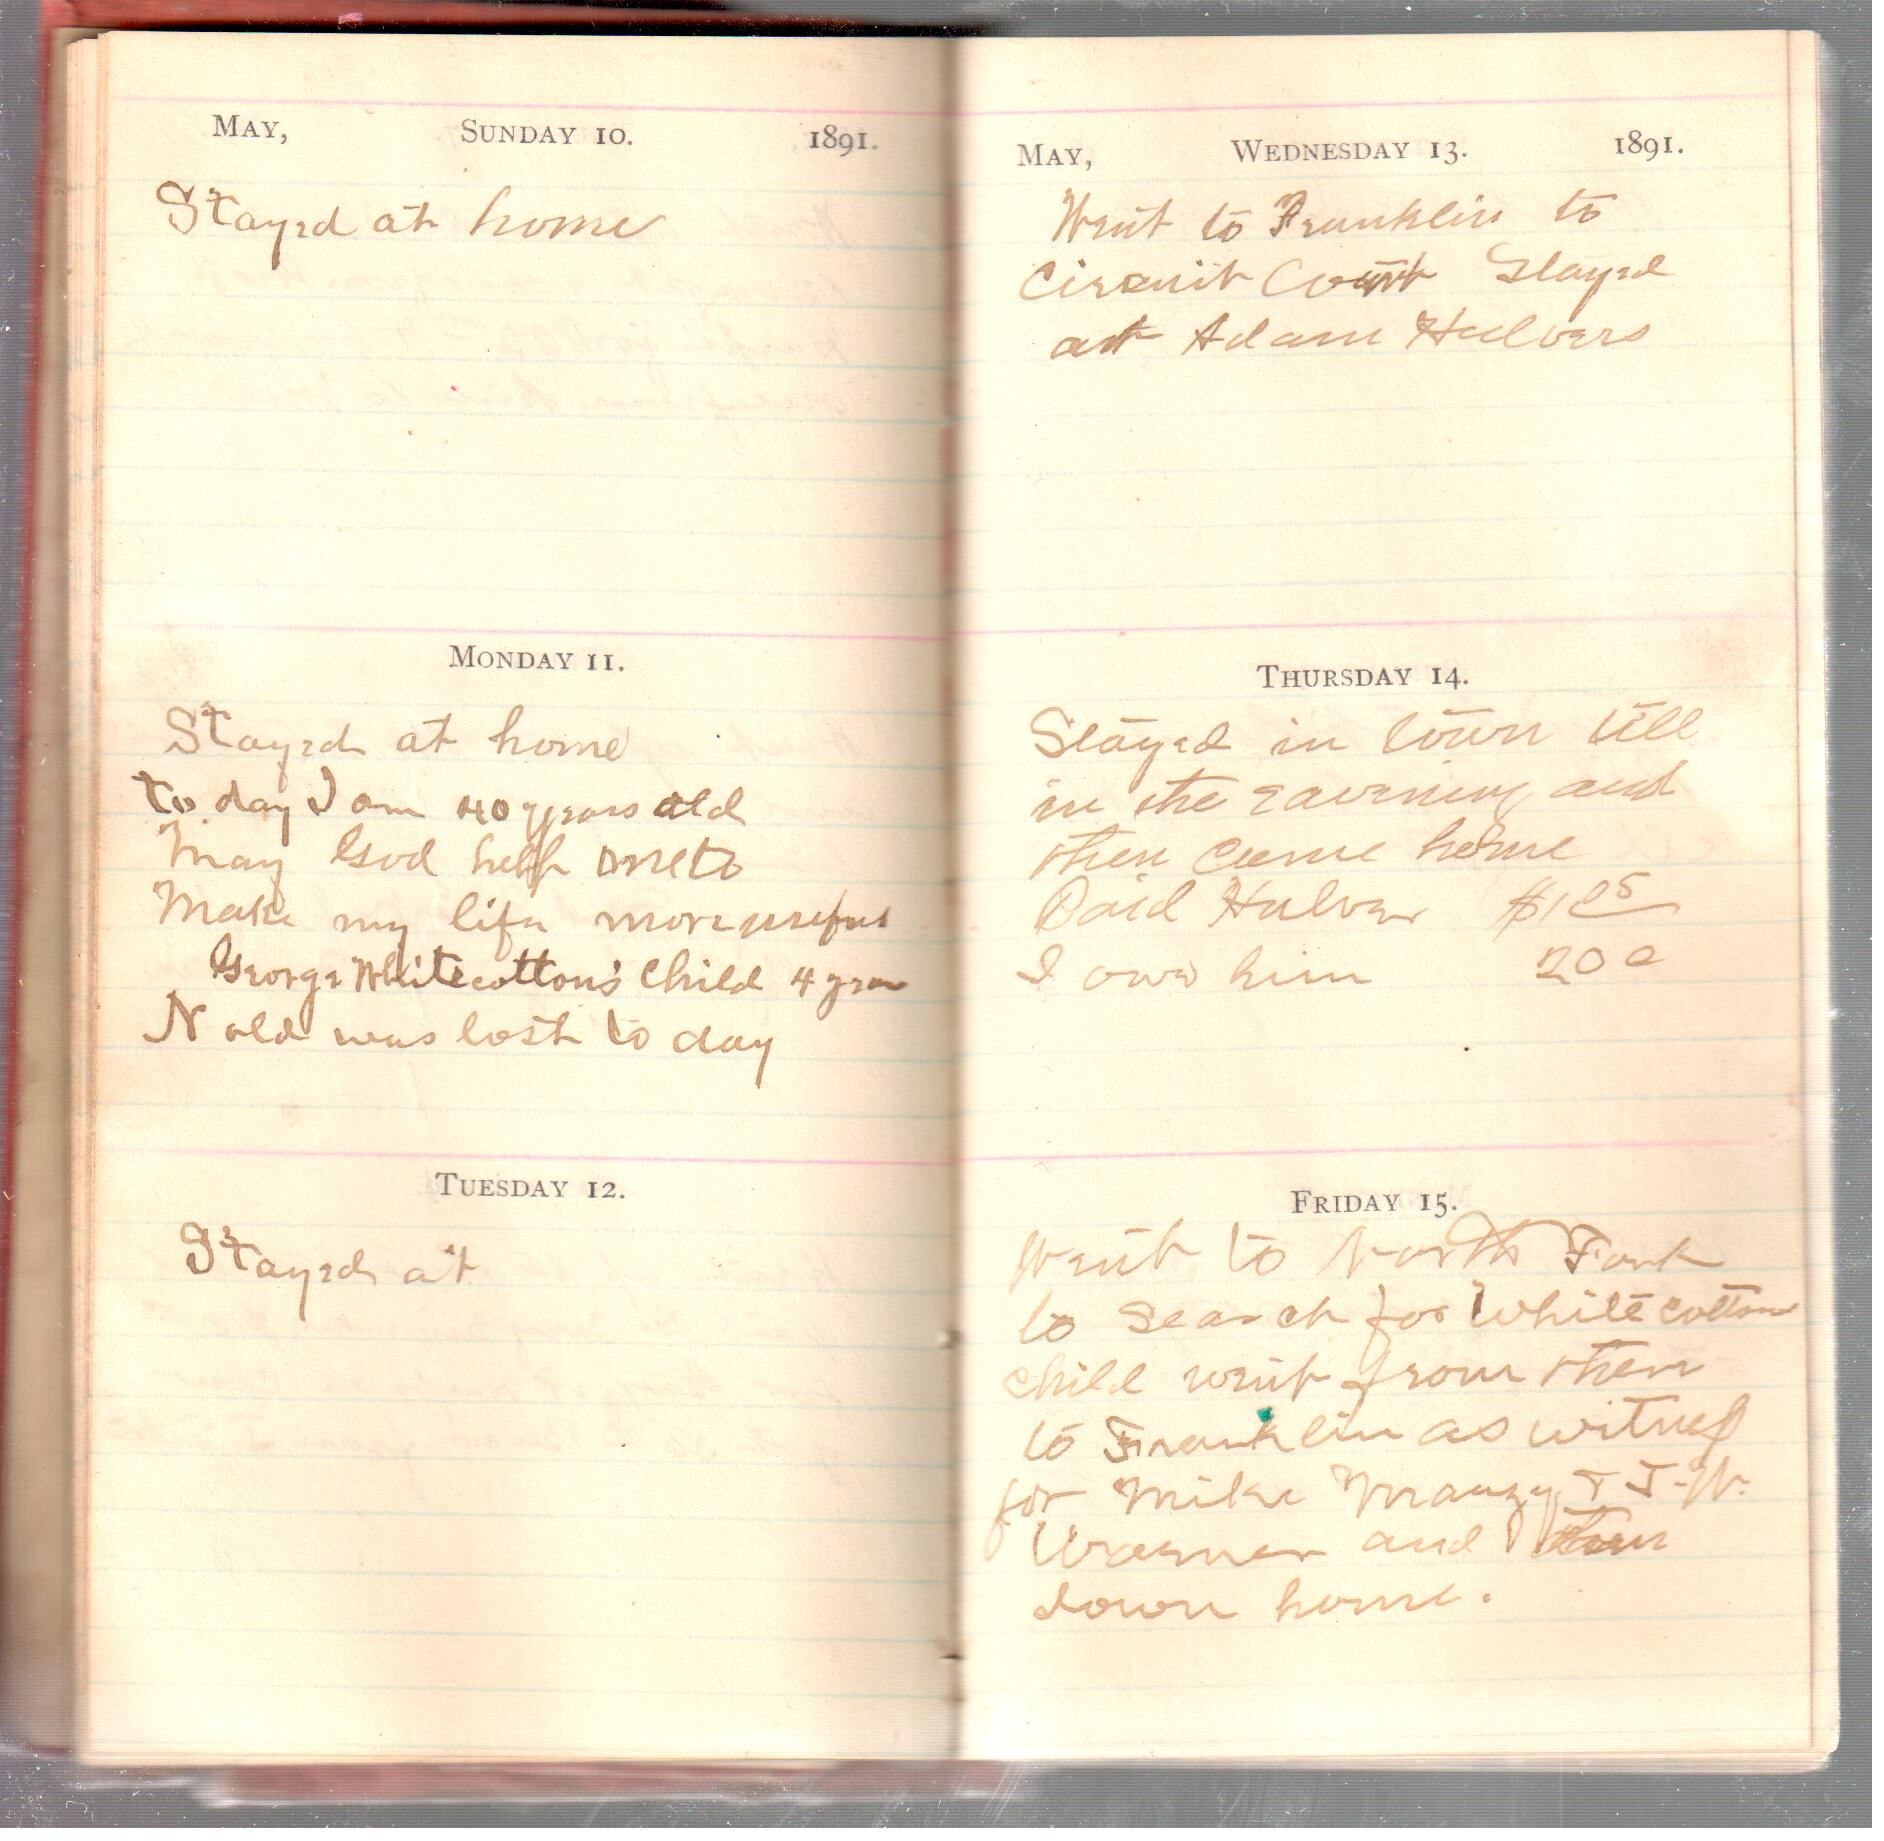 MAY, SUNDAY 10. 1891.
Stayed at home
MONDAY 11.
Stayed at home
to day I am 40 years old
May God help me to
Make my life more useful
George Whitecotton's Child 4 year
N old was lost to day
TUESDAY 12.
Stayed at
MAY, WEDNESDAY 13. 1891.
Went to Franklin to
Circuit Court Stayed
at Adam Hulvers
THURSDAY 14.
Stayed in town till
in the eavening and
then came home
Paid Hulver $1.05
I owe him 20 c
FRIDAY 15.
Went to North Fork
to search for Whitecottons
child went from then
to Franklin as witness
for Mike Mauzy & J-W.
and then
down home.